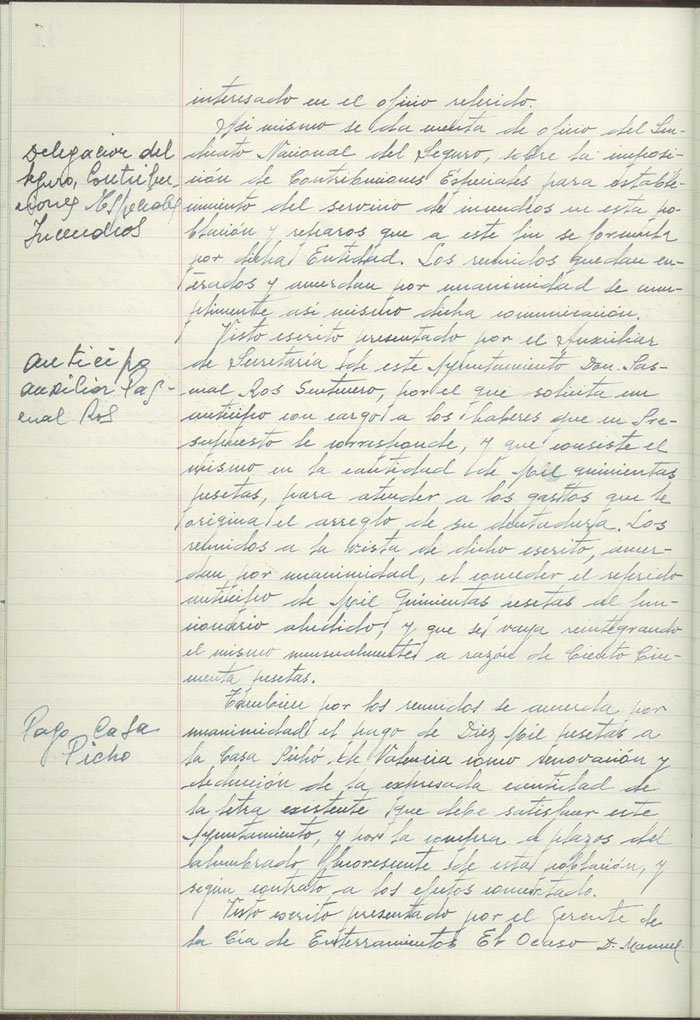 interesado en el oficio referido.
Asi mismo se da cuenta de oficio del Sin-
dicato Nacional del Seguro, sobre la imposi-
ción de Contribuciones Especiales para estable-
cimiento del servicio de incendios en esta po-
blación y reparos que a este fin se formula
por dicha Entidad. Los reunidos quedan en-
terados y acuerdan por unanimidad se cum-
plimente así mismo dicha comunicación.
Delegacion del
Seguro, Contribu-
ciones Especiales
Incendios
Visto escrito presentado por el Auxiliar
de Secretaría de este Ayuntamiento Don Pas-
cual Ros Sentinero, por el que solicita un
anticipo con cargo a los haberes que en Pre-
supuesto le corresponde, y que consiste el
mismo en la cantidad de Mil quinientas
pesetas, para atender a los gastos que le
origina el arreglo de su dentadura. Los
reunidos a la vista de dicho escrito, acuer-
dan por unanimidad, el conceder el referido
anticipo de Mil Quinientas pesetas al fun-
cionario aludido, y que se vaya reintegrando
el mismo mensualmente a razón de Ciento Cin-
cuenta pesetas.
Anticipo
auxiliar Pas-
cual Ros
Tambien por los reunidos se acuerda por
unanimidad el pago de Diez Mil pesetas a
la Casa Pichó de Valencia como renovación y
deducción de la expresada cantidad de
la letra existente que debe satisfacer este
Ayuntamiento, y por la compra a plazos del
alumbrado fluoresente de esta población, y
según contrato a los efectos concertado.
Pago Casa
Picho
Visto escrito presentado por el Gerente de
la Cía de Enterramientos El Ocaso D. Manuel